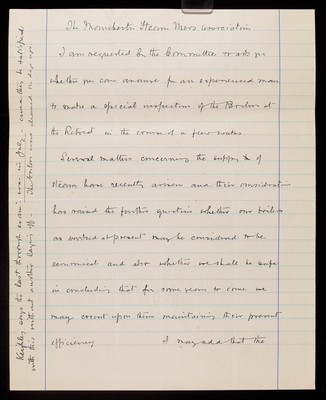 The Manchester Steam Users Association
I am requested by the Committee to ask you
whether you can arrange for an experienced man
to make a special inspection of the Boilers at
the Retreat in the course of a few weeks.
Several matters concerning the supply &c of
steam have recently arisen and their consideration
has raised the further question whether our boilers
as worked at present may be considered to be
economical and also whether we shall be safe
in concluding that for some years to come we
may count upon them maintaining their present
efficiency I may add that the
Keighley says the last thorough exam: was in July - could this be satisfied
with this without another laying off - The boilers were cleaned on days ago.